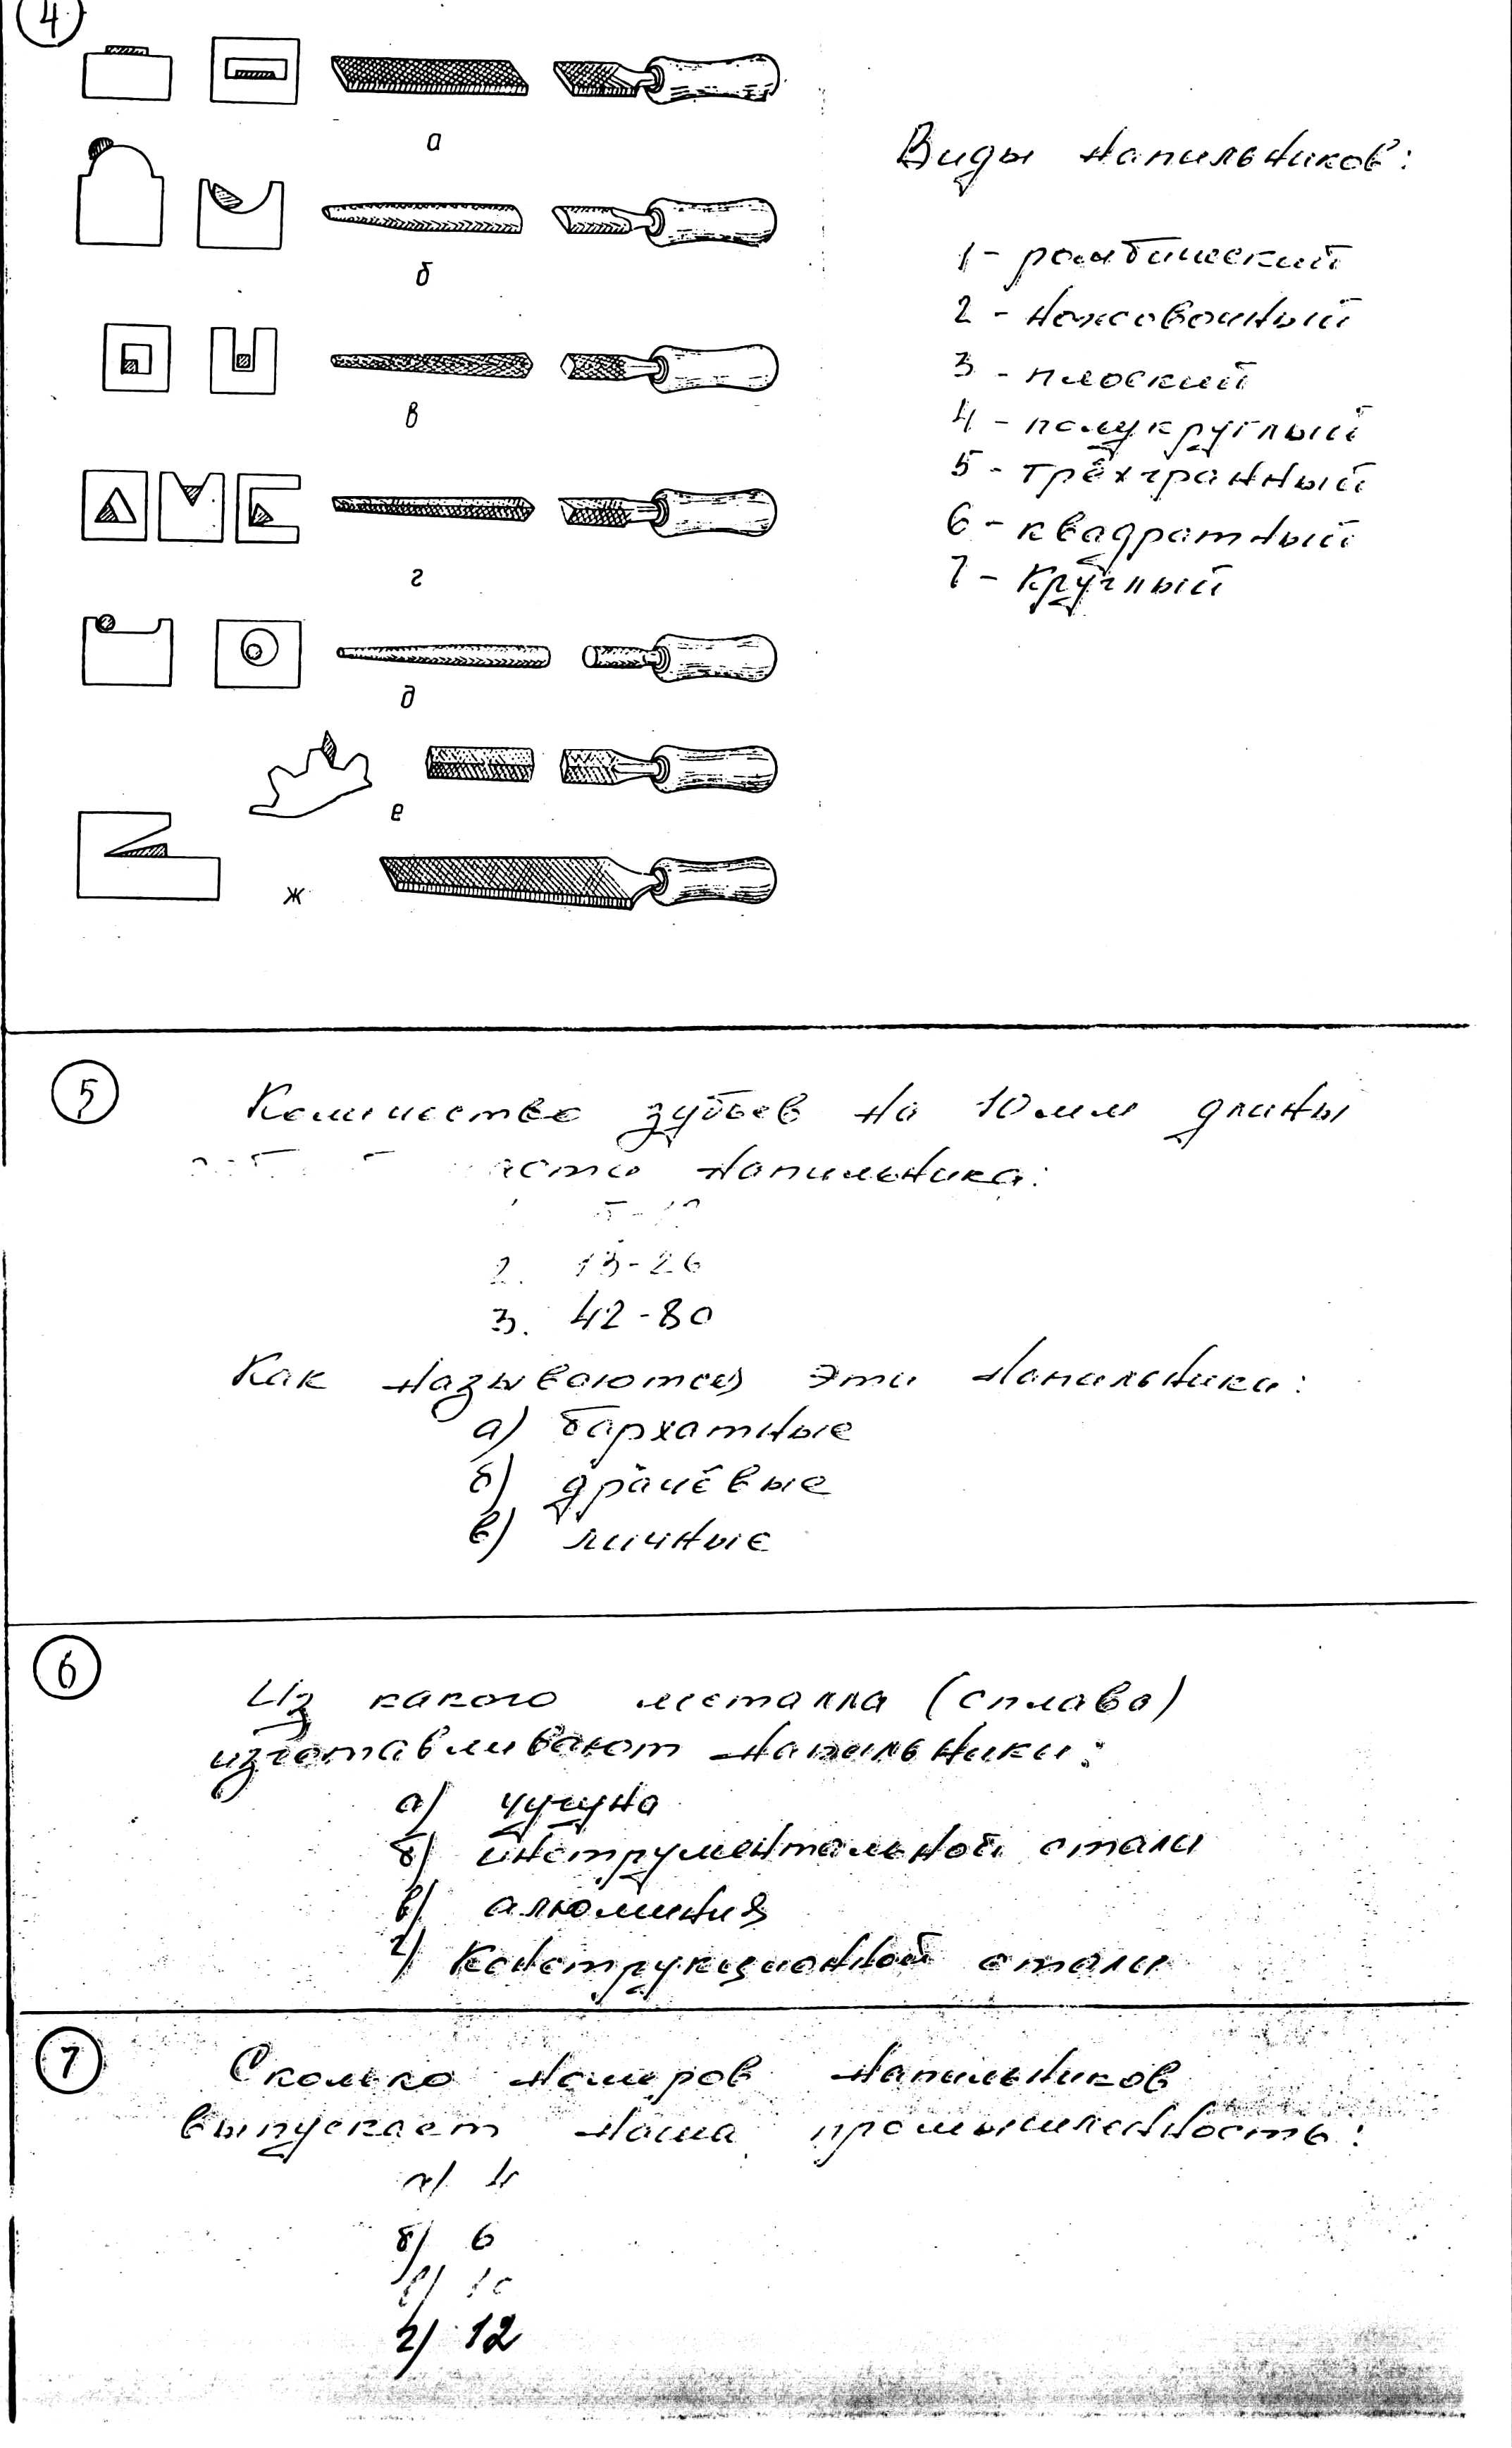 4
а
б
в
г
д
е
ж
Виды напильников:
1 - ромбический
2 - ножовочный
3 - плоский
4 - полукруглый
5 - трёхгранный
6 - квадратный
7 - круглый
5
Количество зубьев на 10 мм длины
напильника:
2. 13-26
3. 42-80
Как называются эти напильники:
а) бархатные
б) драчёвые
в) личные
6
Из какого металла (сплава)
изготавливают напильники:
а) чугуна
б) инструментальной стали
в) алюминия
г) конструкционной стали
7
Сколько номеров напильников
выпускает наша промышленность:
а) 4
б) 6
в) 10
г) 12